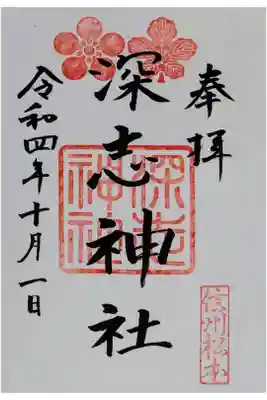 奉拝
深志神社
深志
神社
信州松本
令和四年十月一日